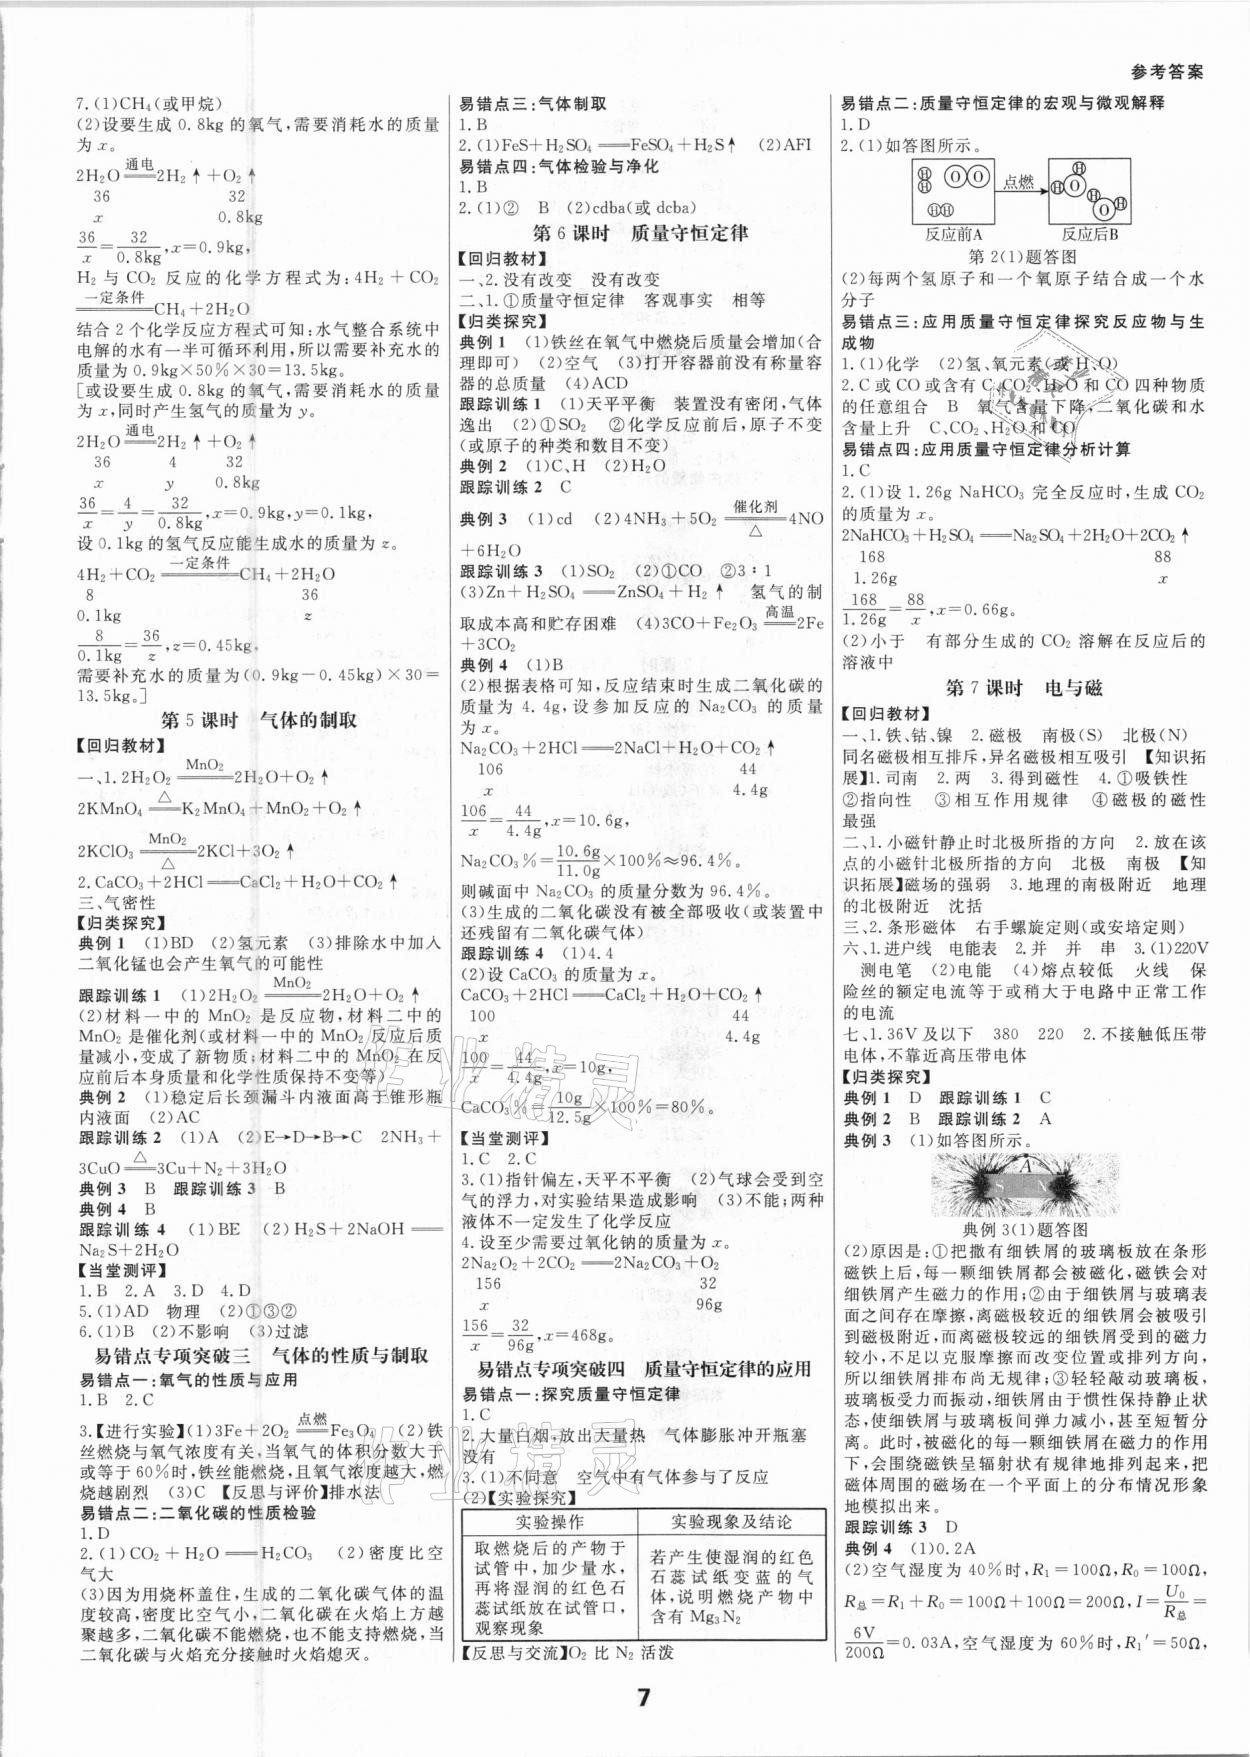 参考答案
7.(1)CH₄(或甲烷)
(2)设要生成 0.8kg 的氧气,需要消耗水的质量
为 x。
2H₂O══通电══2H₂↑+O₂↑
36 32
x 0.8kg
36/x=32/0.8kg,x=0.9kg,
H₂ 与 CO₂ 反应的化学方程式为:4H₂+CO₂
══一定条件══CH₄+2H₂O
结合 2 个化学反应方程式可知:水气整合系统中
电解的水有一半可循环利用,所以需要补充水的
质量为 0.9kg×50%×30=13.5kg。
[或设要生成 0.8kg 的氧气,需要消耗水的质量
为 x,同时产生氢气的质量为 y。
2H₂O══通电══2H₂↑+O₂↑
36 4 32
x y 0.8kg
36/x=4/y=32/0.8kg,x=0.9kg,y=0.1kg,
设 0.1kg 的氢气反应能生成水的质量为 z。
4H₂+CO₂══一定条件══CH₄+2H₂O
8 36
0.1kg z
8/0.1kg=36/z,z=0.45kg,
需要补充水的质量为(0.9kg-0.45kg)×30=
13.5kg。]
第 5 课时 气体的制取
【回归教材】
一、1.2H₂O₂══MnO₂══2H₂O+O₂↑
2KMnO₄══△══K₂MnO₄+MnO₂+O₂↑
2KClO₃══MnO₂/△══2KCl+3O₂↑
2.CaCO₃+2HCl══CaCl₂+H₂O+CO₂↑
三、气密性
【归类探究】
典例 1 (1)BD (2)氢元素 (3)排除水中加入
二氧化锰也会产生氧气的可能性
跟踪训练 1 (1)2H₂O₂══MnO₂══2H₂O+O₂↑
(2)材料一中的 MnO₂ 是反应物,材料二中的
MnO₂ 是催化剂(或材料一中的 MnO₂ 反应后质
量减小,变成了新物质;材料二中的 MnO₂ 在反
应前后本身质量和化学性质保持不变等)
典例 2 (1)稳定后长颈漏斗内液面高于锥形瓶
内液面 (2)AC
跟踪训练 2 (1)A (2)E→D→B→C 2NH₃+
3CuO══△══3Cu+N₂+3H₂O
典例 3 B 跟踪训练 3 B
典例 4 B
跟踪训练 4 (1)BE (2)H₂S+2NaOH══
Na₂S+2H₂O
【当堂测评】
1.B 2.A 3.D 4.D
5.(1)AD 物理 (2)①③②
6.(1)B (2)不影响 (3)过滤
易错点专项突破三 气体的性质与制取
易错点一:氧气的性质与应用
1.B 2.C
3.【进行实验】(1)3Fe+2O₂══点燃══Fe₃O₄ (2)铁
丝燃烧与氧气浓度有关,当氧气的体积分数大于
或等于 60%时,铁丝能燃烧,且氧气浓度越大,燃
烧越剧烈 (3)C 【反思与评价】排水法
易错点二:二氧化碳的性质检验
1.D
2.(1)CO₂+H₂O══H₂CO₃ (2)密度比空
气大
(3)因为用烧杯盖住,生成的二氧化碳气体的温
度较高,密度比空气小,二氧化碳在火焰上方越
聚越多,二氧化碳不能燃烧,也不能支持燃烧,当
二氧化碳与火焰充分接触时火焰熄灭。
易错点三:气体制取
1.B
2.(1)FeS+H₂SO₄══FeSO₄+H₂S↑ (2)AFI
易错点四:气体检验与净化
1.B
2.(1)② B (2)cdba(或 dcba)
第 6 课时 质量守恒定律
【回归教材】
一、2.没有改变 没有改变
二、1.①质量守恒定律 客观事实 相等
【归类探究】
典例 1 (1)铁丝在氧气中燃烧后质量会增加(合
理即可) (2)空气 (3)打开容器前没有称量容
器的总质量 (4)ACD
跟踪训练 1 (1)天平平衡 装置没有密闭,气体
逸出 (2)①SO₂ ②化学反应前后,原子不变
(或原子的种类和数目不变)
典例 2 (1)C、H (2)H₂O
跟踪训练 2 C
典例 3 (1)cd (2)4NH₃+5O₂══催化剂/△══4NO
+6H₂O
跟踪训练 3 (1)SO₂ (2)①CO ②3∶1
(3)Zn+H₂SO₄══ZnSO₄+H₂↑ 氢气的制
取成本高和贮存困难 (4)3CO+Fe₂O₃══高温══2Fe
+3CO₂
典例 4 (1)B
(2)根据表格可知,反应结束时生成二氧化碳的
质量为 4.4g,设参加反应的 Na₂CO₃ 的质量
为 x。
Na₂CO₃+2HCl══2NaCl+H₂O+CO₂↑
106 44
x 4.4g
106/x=44/4.4g,x=10.6g,
Na₂CO₃%=10.6g/11.0g×100%≈96.4%。
则碱面中 Na₂CO₃ 的质量分数为 96.4%。
(3)生成的二氧化碳没有被全部吸收(或装置中
还残留有二氧化碳气体)
跟踪训练 4 (1)4.4
(2)设 CaCO₃ 的质量为 x。
CaCO₃+2HCl══CaCl₂+H₂O+CO₂↑
100 44
x 4.4g
100/x=44/4.4g,x=10g,
CaCO₃%=10g/12.5g×100%=80%。
【当堂测评】
1.C 2.C
3.(1)指针偏左,天平不平衡 (2)气球会受到空
气的浮力,对实验结果造成影响 (3)不能;两种
液体不一定发生了化学反应
4.设至少需要过氧化钠的质量为 x。
2Na₂O₂+2CO₂══2Na₂CO₃+O₂
156 32
x 96g
156/x=32/96g,x=468g。
易错点专项突破四 质量守恒定律的应用
易错点一:探究质量守恒定律
1.C
2.大量白烟,放出大量热 气体膨胀冲开瓶塞
没有
3.(1)不同意 空气中有气体参与了反应
(2)【实验探究】
实验操作 实验现象及结论
取燃烧后的产物于
试管中,加少量水,
再将湿润的红色石
蕊试纸放在试管口,
观察现象
若产生使湿润的红色
石蕊试纸变蓝的气
体,说明燃烧产物中
含有 Mg₃N₂
【反思与交流】O₂ 比 N₂ 活泼
易错点二:质量守恒定律的宏观与微观解释
1.D
2.(1)如答图所示。
点燃
反应前A 反应后B
第 2(1)题答图
(2)每两个氢原子和一个氧原子结合成一个水
分子
易错点三:应用质量守恒定律探究反应物与生
成物
1.(1)化学 (2)氢、氧元素(或 H、O)
2.C 或 CO 或含有 C、CO₂、H₂O 和 CO 四种物质
的任意组合 B 氧气含量下降,二氧化碳和水
含量上升 C、CO₂、H₂O 和 CO
易错点四:应用质量守恒定律分析计算
1.C
2.(1)设 1.26g NaHCO₃ 完全反应时,生成 CO₂
的质量为 x。
2NaHCO₃+H₂SO₄══Na₂SO₄+2H₂O+2CO₂↑
168 88
1.26g x
168/1.26g=88/x,x=0.66g。
(2)小于 有部分生成的 CO₂ 溶解在反应后的
溶液中
第 7 课时 电与磁
【回归教材】
一、1.铁、钴、镍 2.磁极 南极(S) 北极(N)
同名磁极相互排斥,异名磁极相互吸引 【知识拓
展】1.司南 2.两 3.得到磁性 4.①吸铁性
②指向性 ③相互作用规律 ④磁极的磁性
最强
二、1.小磁针静止时北极所指的方向 2.放在该
点的小磁针北极所指的方向 北极 南极 【知
识拓展】磁场的强弱 3.地理的南极附近 地理
的北极附近 沈括
三、2.条形磁体 右手螺旋定则(或安培定则)
六、1.进户线 电能表 2.并 并 串 3.(1)220V
测电笔 (2)电能 (4)熔点较低 火线 保
险丝的额定电流等于或稍大于电路中正常工作
的电流
七、1.36V 及以下 380 220 2.不接触低压带
电体,不靠近高压带电体
【归类探究】
典例 1 D 跟踪训练 1 C
典例 2 B 跟踪训练 2 A
典例 3 (1)如答图所示。
A
S N
典例 3(1)题答图
(2)原因是:①把撒有细铁屑的玻璃板放在条形
磁铁上后,每一颗细铁屑都会被磁化,磁铁会对
细铁屑产生磁力的作用;②由于细铁屑与玻璃表
面之间存在摩擦,离磁极较近的细铁屑会被吸引
到磁极附近,而离磁极较远的细铁屑受到的磁力
较小,不足以克服摩擦而改变位置或排列方向,
所以细铁屑排布尚无规律;③轻轻敲动玻璃板,
玻璃板受力而振动,细铁屑由于惯性保持静止状
态,使细铁屑与玻璃板间弹力减小,甚至短暂分
离。此时,被磁化的每一颗细铁屑在磁力的作用
下,会围绕磁铁呈辐射状有规律地排列起来,把
磁体周围的磁场在一个平面上的分布情况形象
地模拟出来。
跟踪训练 3 D
典例 4 (1)0.2A
(2)空气湿度为 40%时,R₁=100Ω,R₀=100Ω,
R总=R₁+R₀=100Ω+100Ω=200Ω,I=U₀/R总=
6V/200Ω=0.03A,空气湿度为 60%时,R₁′=50Ω,
7
作业精灵
作业精灵